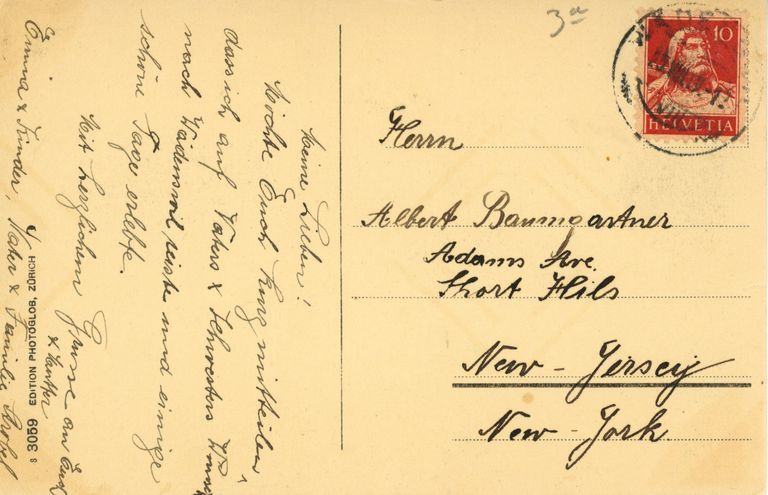 3a
10
HELVETIA
Meine Lieben!
Möchte Euch kurz mitteilen,
dass ich auf Vaters & Schwesters Wunsch
nach Wädenswil reiste und einige
schöne Tage erlebte.
Mit herzlichem Grusse an Euch
& Mutter
Emma & Kinder, Vater & Familie Strobel
S 3059 EDITION PHOTOGLOB, ZÜRICH
Herrn
Albert Baumgartner
Adams Ave.
Short Hils
New-Jersey
New-York